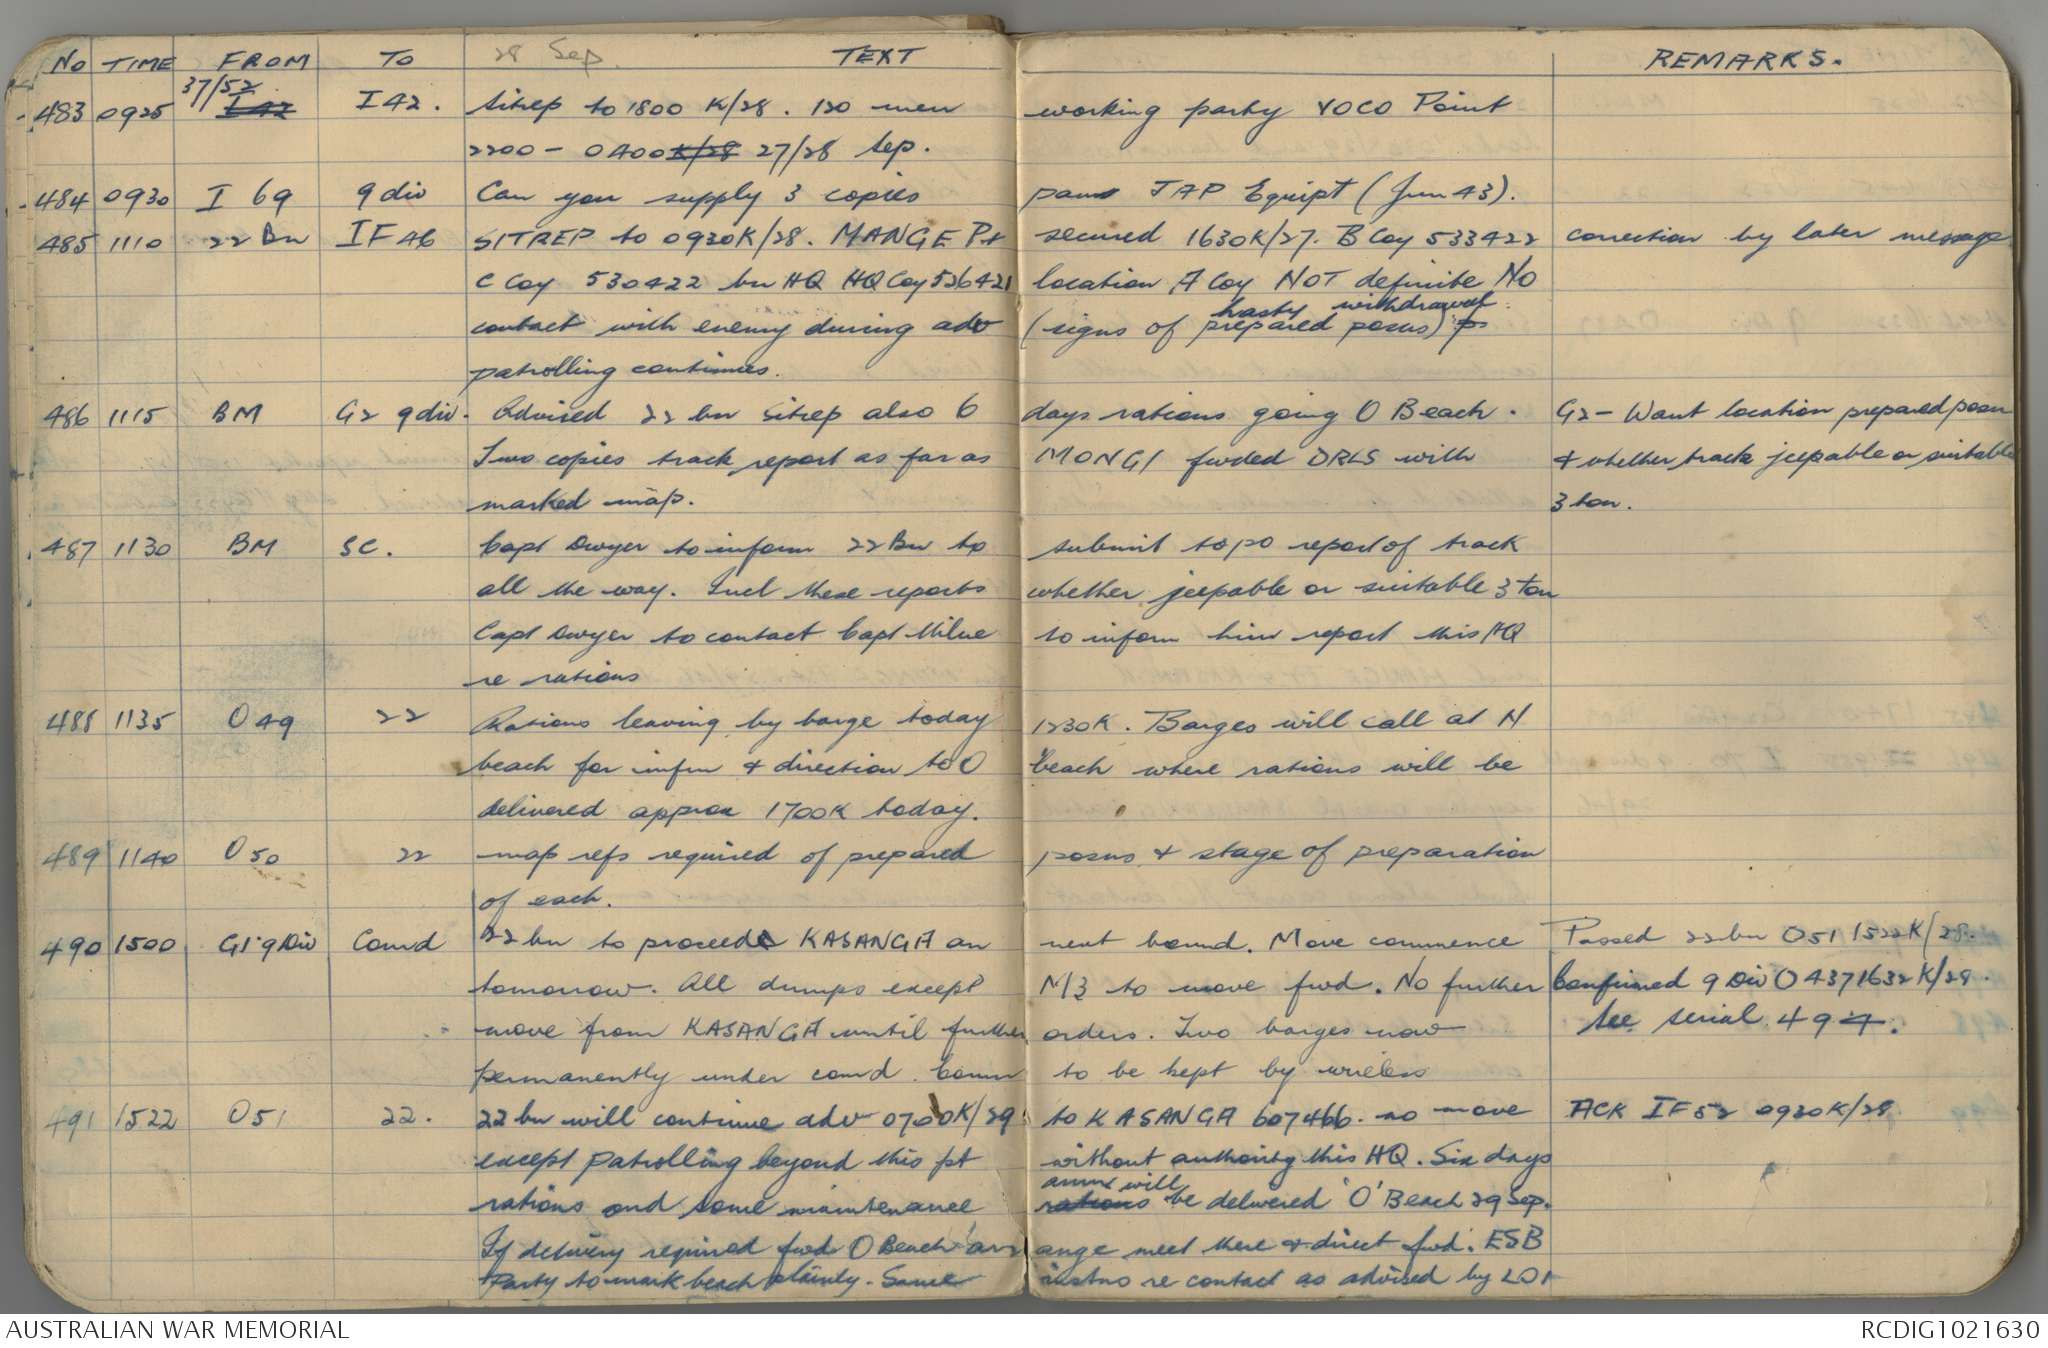 No TIME FROM TO 28 Sep. TEXT REMARKS.
37/52
483 0925 I 42 I 42. Sitrep to 1800 K/28. 120 men working party VOCO Point
2200 - 0400 K/28 27/28 Sep.
484 0930 I 69 9 div Can you supply 3 copies pam JAP Equipt (Jun 43).
485 1110 22 Bn IF 46 SITREP to 0930K/28. MANGE Pt secured 1630K/27. B Coy 533422 correction by later message
C Coy 530422 bn HQ HQ Coy 526421 location A Coy NOT definite No
hasty withdrawal
contact with enemy during adv (signs of prepared posns)
patrolling continues.
486 1115 BM G2 9 div. Advised 22 bn sitrep also 6 days rations going O Beach. G2 - Want location prepared posn
Two copies track report as far as MONGI fwded DRLS with & whether track jeepable or suitable
marked map. 3 ton.
487 1130 BM SC. Capt Dwyer to inform 22 Bn to submit topo report of track
all the way. Incl these reports whether jeepable or suitable 3 ton
Capt Dwyer to contact Capt Milne to inform him report this HQ
re rations
488 1135 O 49 22 Rations leaving by barge today 1230K. Barges will call at N
beach for infm & direction to O beach where rations will be
delivered approx 1700K today.
489 1140 O 50 22 map refs required of prepared posns & stage of preparation
of each.
490 1500 G1 9 Div Comd 22 bn to proceed KASANGA on next bound. Move commence Passed 22 bn O51 1522K/28.
tomorrow. All dumps except M/3 to move fwd. No further Confirmed 9 Div O 437 1632K/28.
move from KASANGA until further orders. Two barges now See serial 494.
permanently under comd. Comn to be kept by wireless
491 1522 O 51 22. 22 bn will continue adv 0700K/29 to KASANGA 607466. no move ACK IF 52 0930K/28.
except patrolling beyond this pt without authority this HQ. Six days
ammn will
rations and some maintenance rations be delivered 'O' Beach 29 Sep.
If delivery required fwd O Beach arrange meet there & direct fwd. ESB
Party to mark beach plainly. Same instns re contact as advised by LO1
AUSTRALIAN WAR MEMORIAL RCDIG1021630